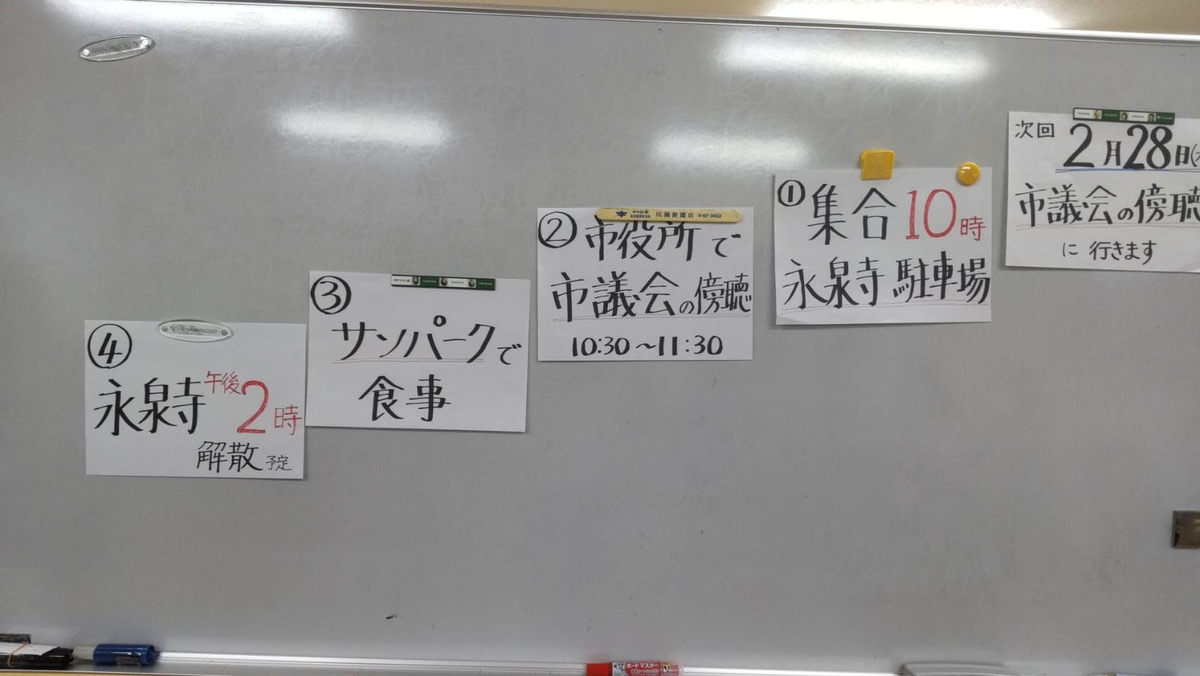 次回 2月28日(
市議会の傍聴
に行きます
① 集合10時
永泉寺 駐車場
② 市役所で
市議会の傍聴
10:30~11:30
③ サンパークで
食事
④ 永泉寺 午後2時
解散予定
川瀬新聞店
ボードマスター